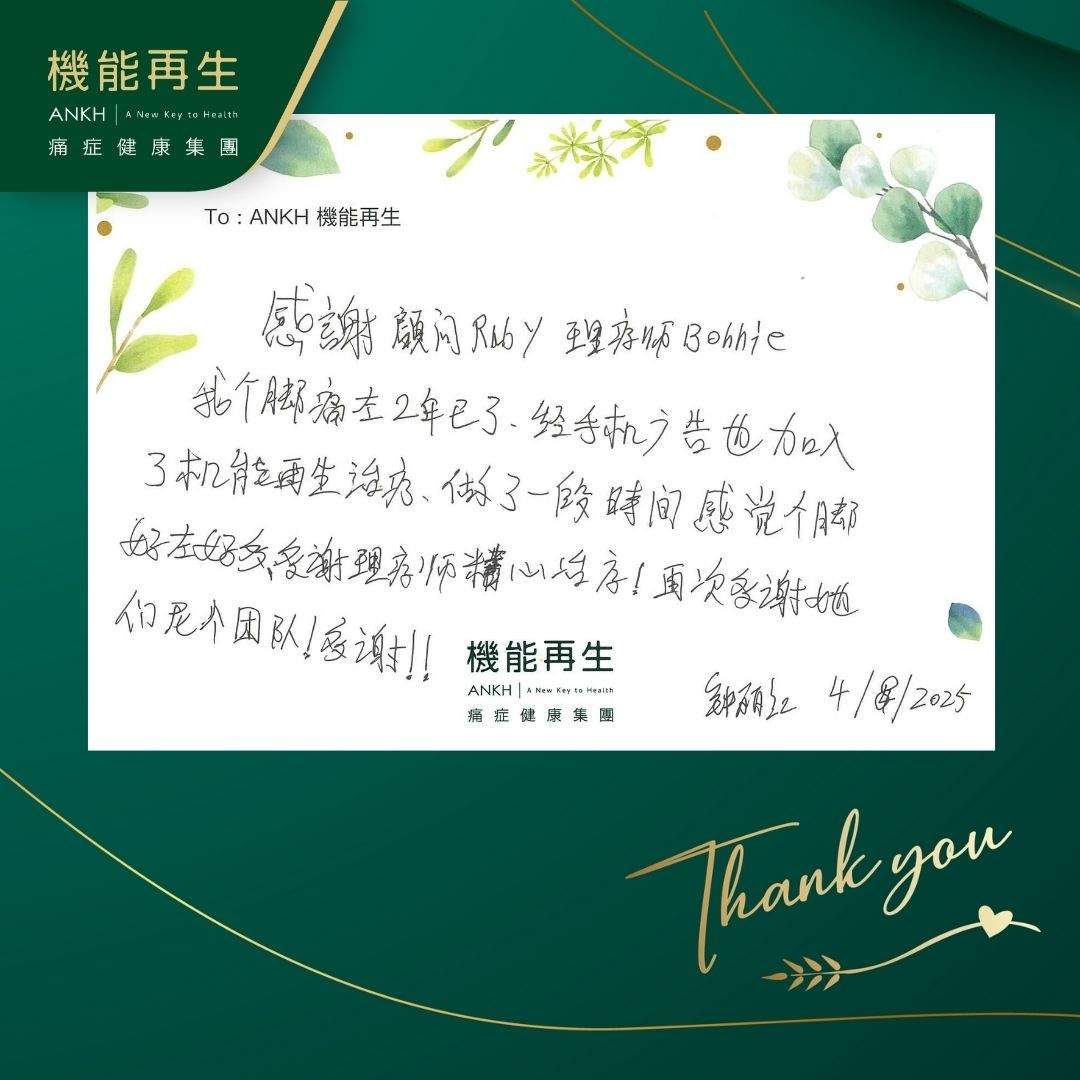 機能再生
ANKH | A New Key to Health
痛症健康集團
To : ANKH 機能再生
感謝顧问Ruby 理疗师Bonnie
我个脚痛左2年已了、经手机广告也加入
了机能再生治疗、做了一段時间感觉个脚
好左好多、多谢理疗师精心治疗！再次多谢她
们九个团队！多谢！！
機能再生
ANKH | A New Key to Health
痛症健康集團
4/4/2025
Thank you